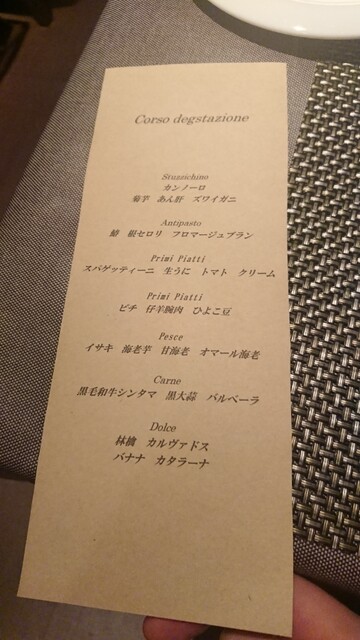 Corso degstazione
Stuzzichino
カンノーロ
菊芋 あん肝 ズワイガニ
Antipasto
鰆 根セロリ フロマージュブラン
Primi Piatti
スパゲッティーニ 生うに トマト クリーム
Primi Piatti
ピチ 仔羊腕肉 ひよこ豆
Pesce
イサキ 海老芋 甘海老 オマール海老
Carne
黒毛和牛シンタマ 黒大蒜 バルベーラ
Dolce
林檎 カルヴァドス
バナナ カタラーナ